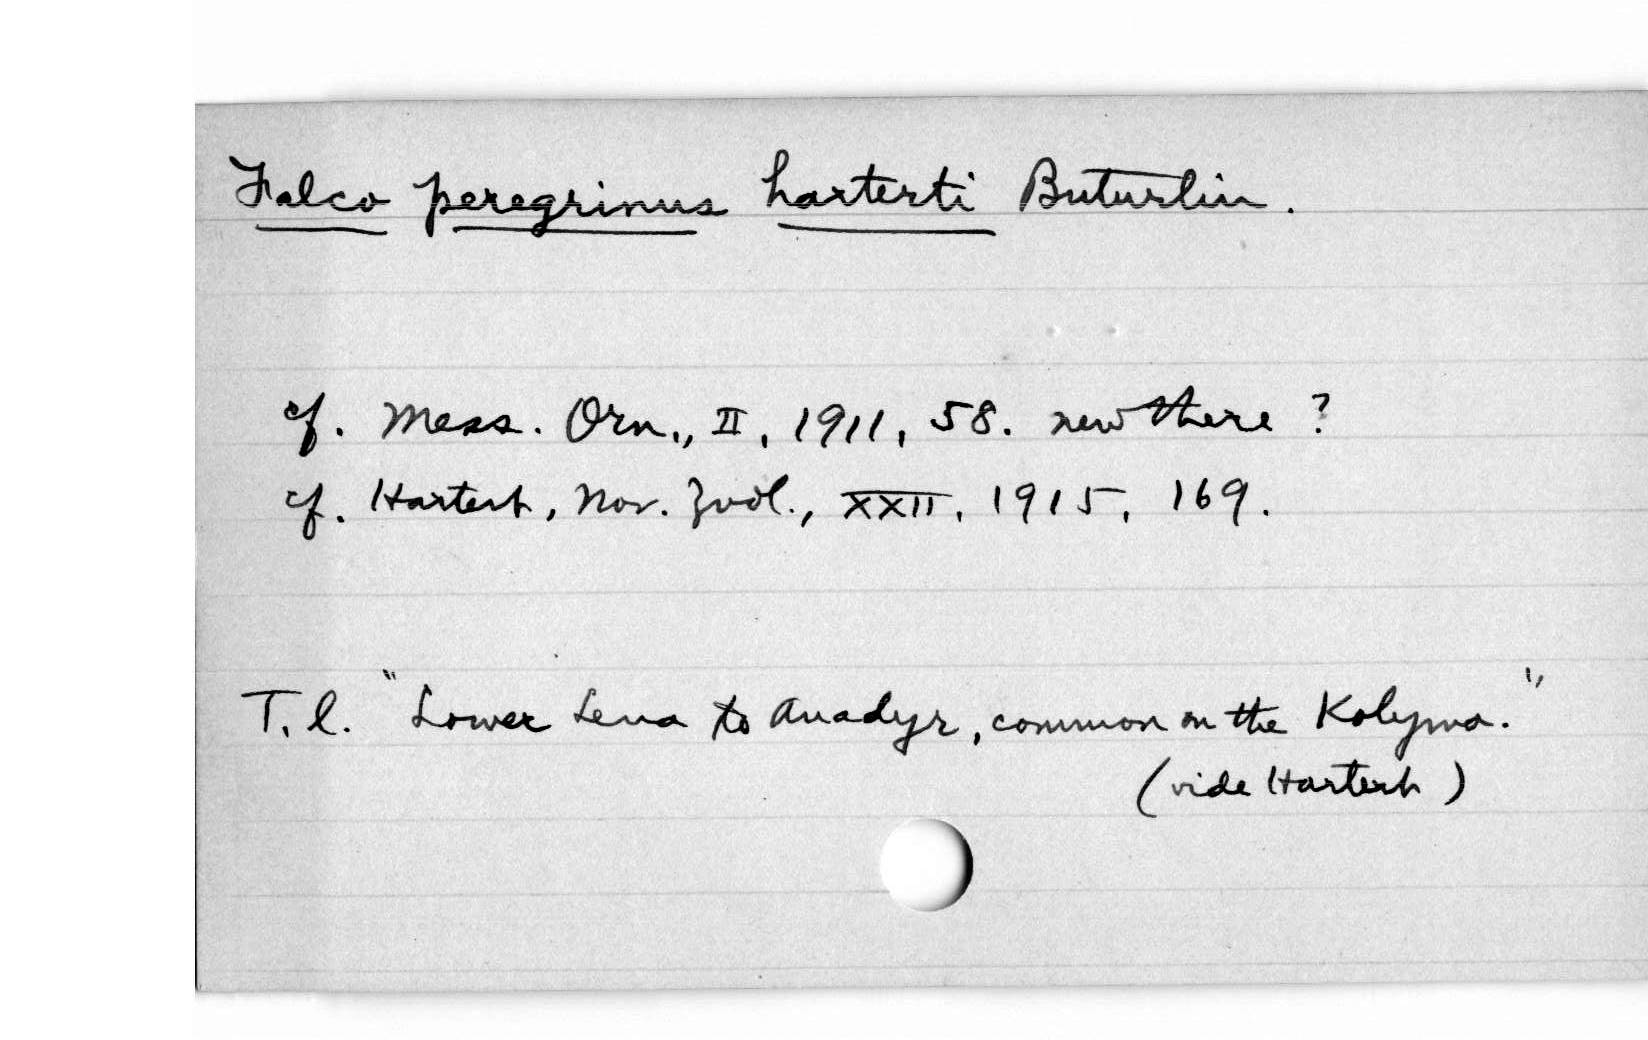 Falco peregrinus harterti Buturlin.
cf. Mess. Orn., II, 1911, 58. new there ?
cf. Hartert, Nov. Zool., XXII, 1915, 169.
T. l. "Lower Lena to Anadyr, common on the Kolyma."
(vide Hartert)